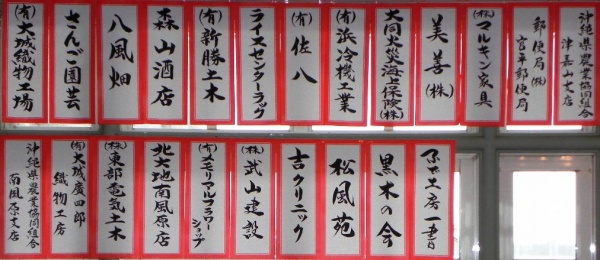 沖縄県農業協同組合
津嘉山支店
郵便局(株)
宮平郵便局
(株)マルキン家具
美善(株)
大同火災海上保険(株)
(有)浜冷機工業
(有)佐八
ライスセンターラッグ
(有)新勝土木
森山酒店
八風畑
さんご園芸
(有)大城織物工場
黒木の会
松風苑
吉クリニック
(株)武山建設
(有)メモリアルフラワー
ショップ
北大地南風原店
(株)東部電気土木
(有)大城廣四郎
織物工房
沖縄県農業協同組合
南風原支店